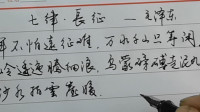 七律·长征 — 毛泽东
军不怕远征难，万水千山只等闲
逶迤腾细浪，乌蒙磅礴走泥丸
沙水拍云崖暖